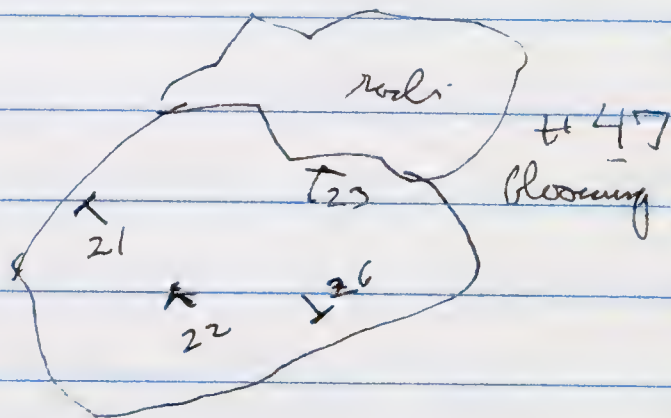 rocks
# 47
blooming
23
21
26
22